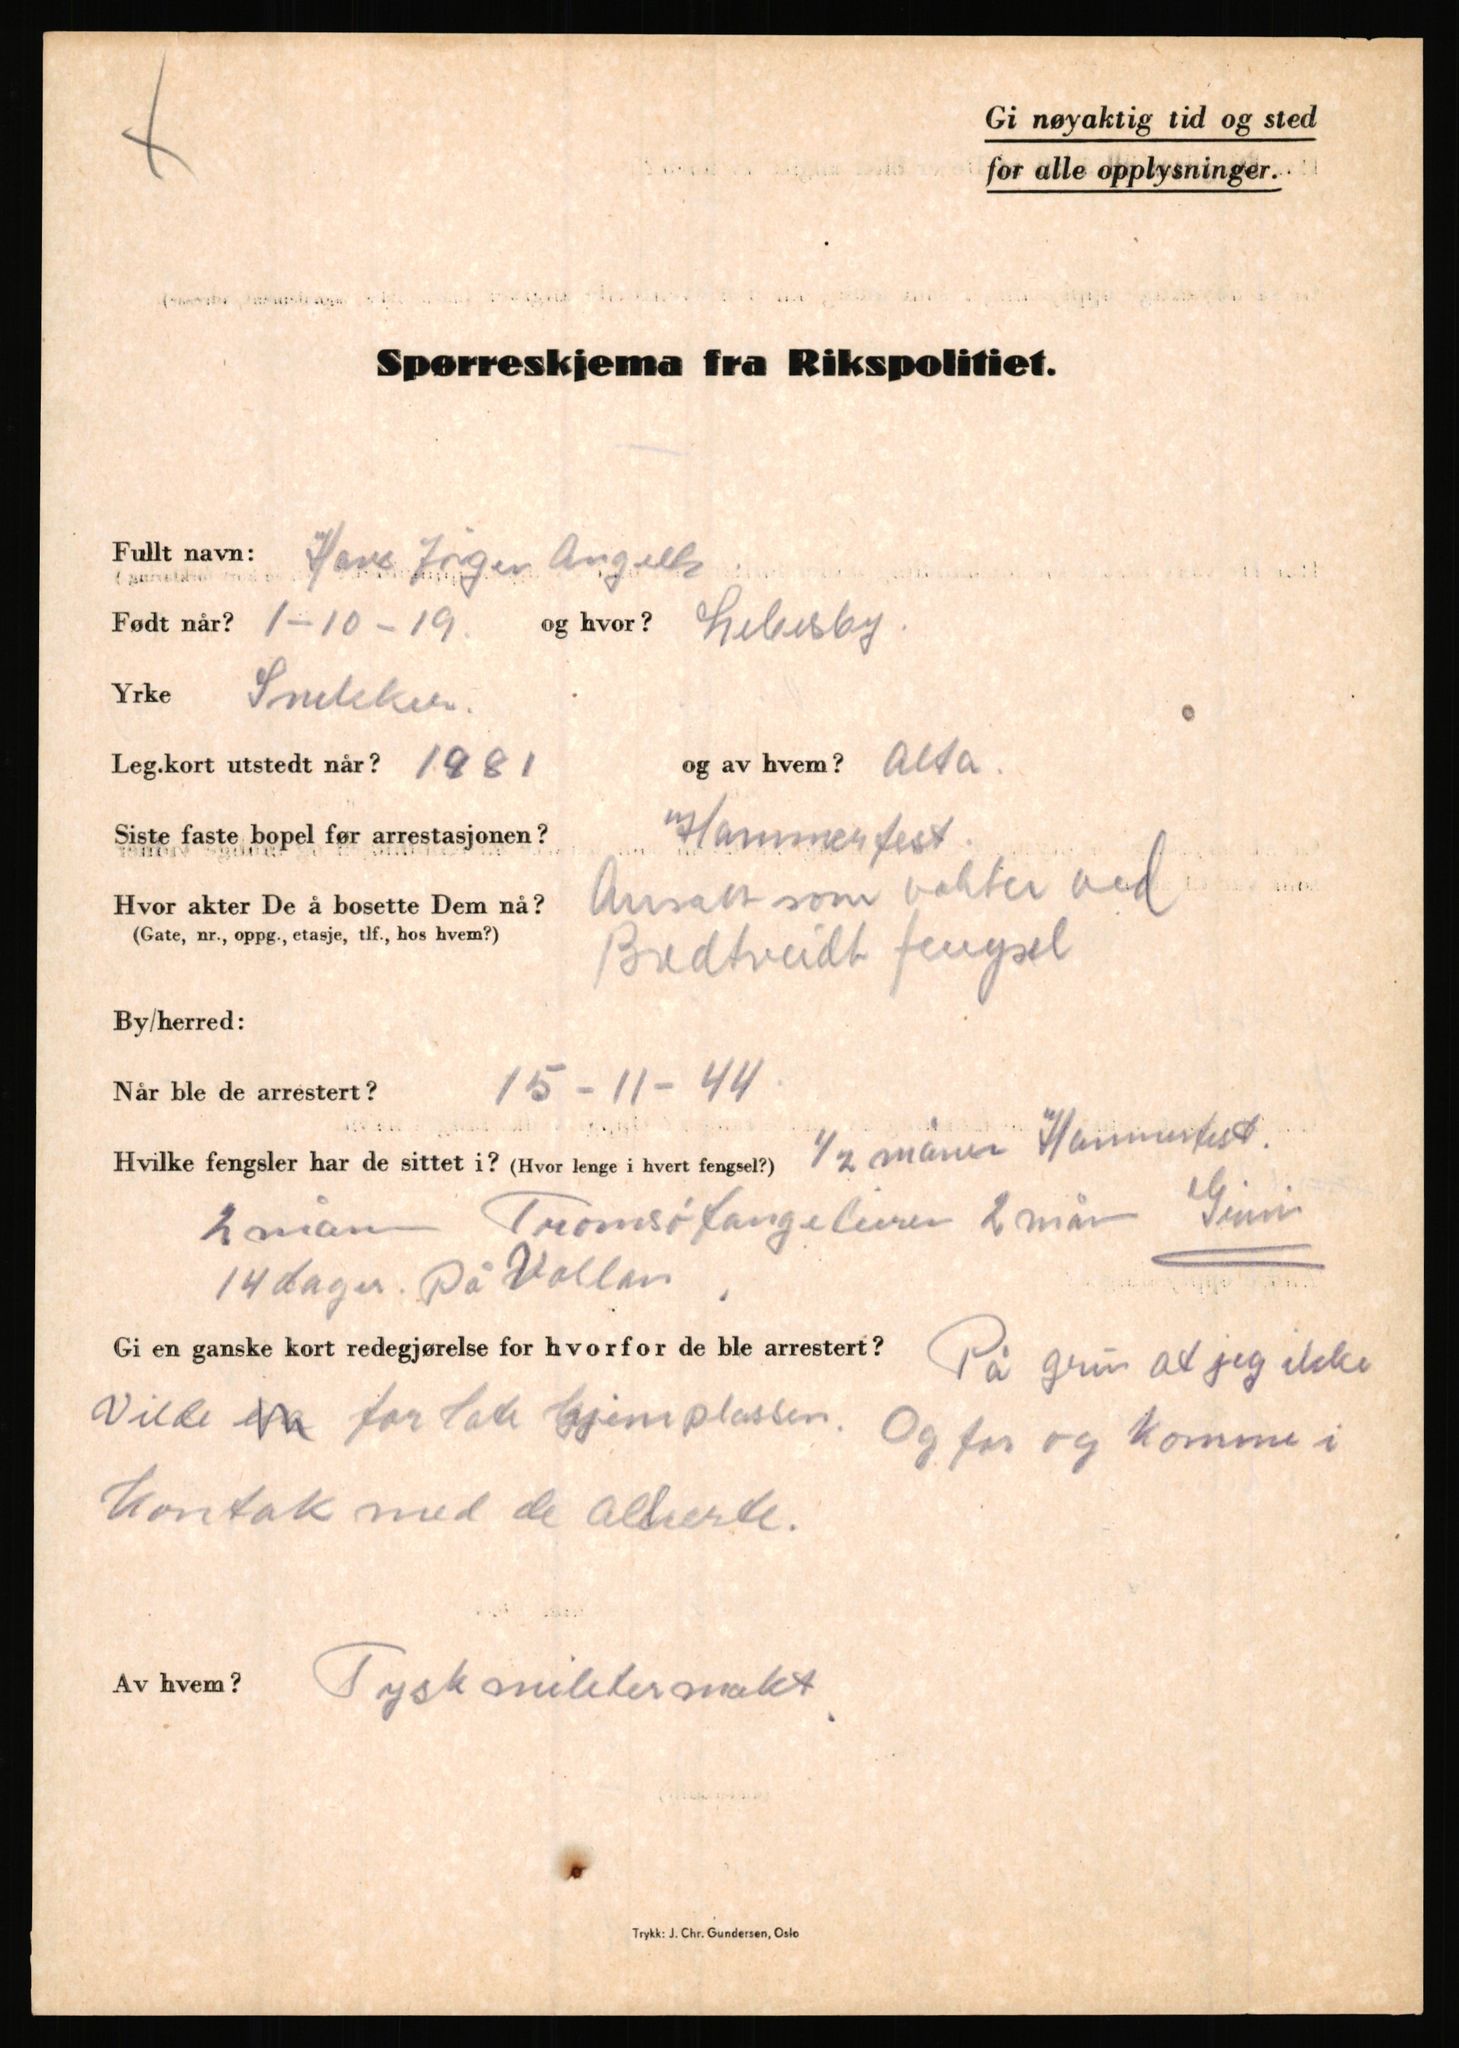 Gi nøyaktig tid og sted
for alle opplysninger.
Spørreskjema fra Rikspolitiet.
Fullt navn: Hans Jörgen Angell
Født når? 1-10-19. og hvor? Lebesby.
Yrke Snekker.
Leg.kort utstedt når? 1981 og av hvem? Alta.
Siste faste bopel før arrestasjonen? Hammerfest.
Hvor akter De å bosette Dem nå? Ansatt som vakter ved
(Gate, nr., oppg., etasje, tlf., hos hvem?) Bredtveidt fengsel
By/herred:
Når ble de arrestert? 15-11-44.
Hvilke fengsler har de sittet i? (Hvor lenge i hvert fengsel?) 1/2 måner Hammerfest.
2 mån Tromsö fangeleiren 2 mån Grini
14 dager. på Vollan.
Gi en ganske kort redegjørelse for hvorfor de ble arrestert? På grun at jeg ikke
vilde for late hjemplassen. Og for og komme i
kontak med de alierte.
Av hvem? Tysk militermakt.
Trykk: J. Chr. Gundersen, Oslo